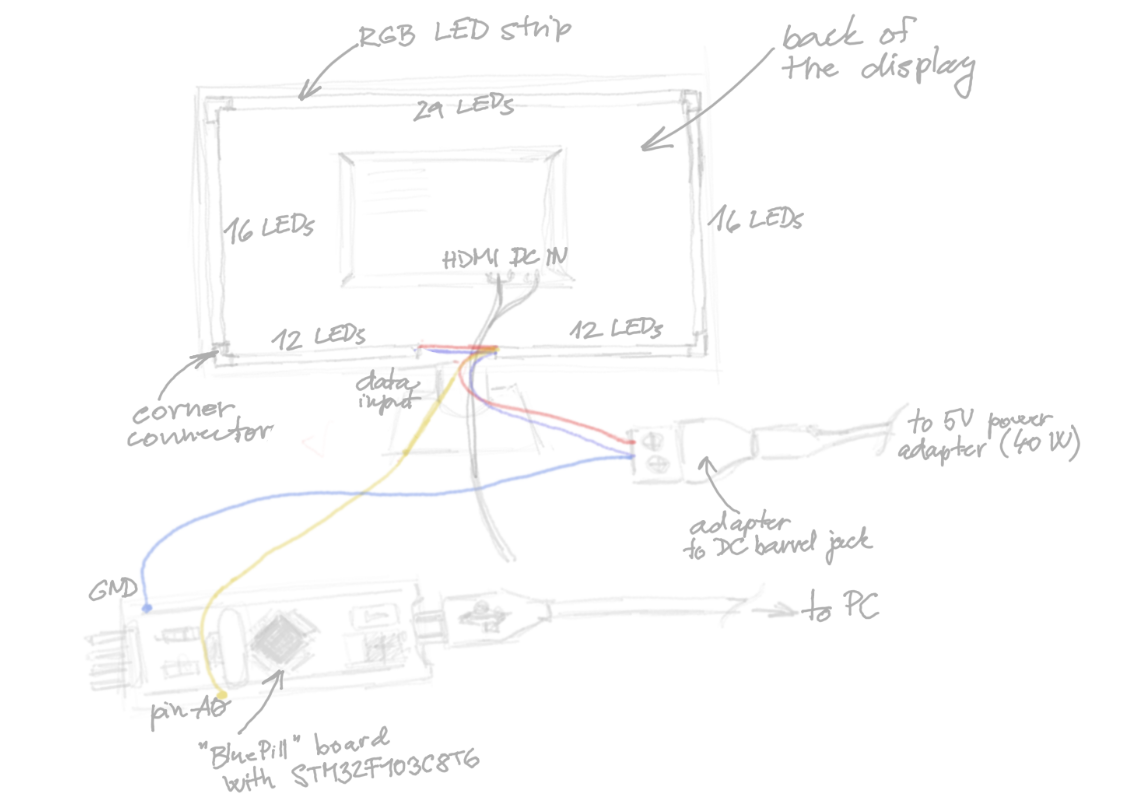 RGB LED strip
back of
the display
29 LEDs
16 LEDs
16 LEDs
HDMI DC IN
12 LEDs
12 LEDs
data
input
corner
connector
to 5V power
adapter (40 W)
adapter
to DC barrel jack
GND
to PC
pin A0
"BluePill" board
with STM32F103C8T6